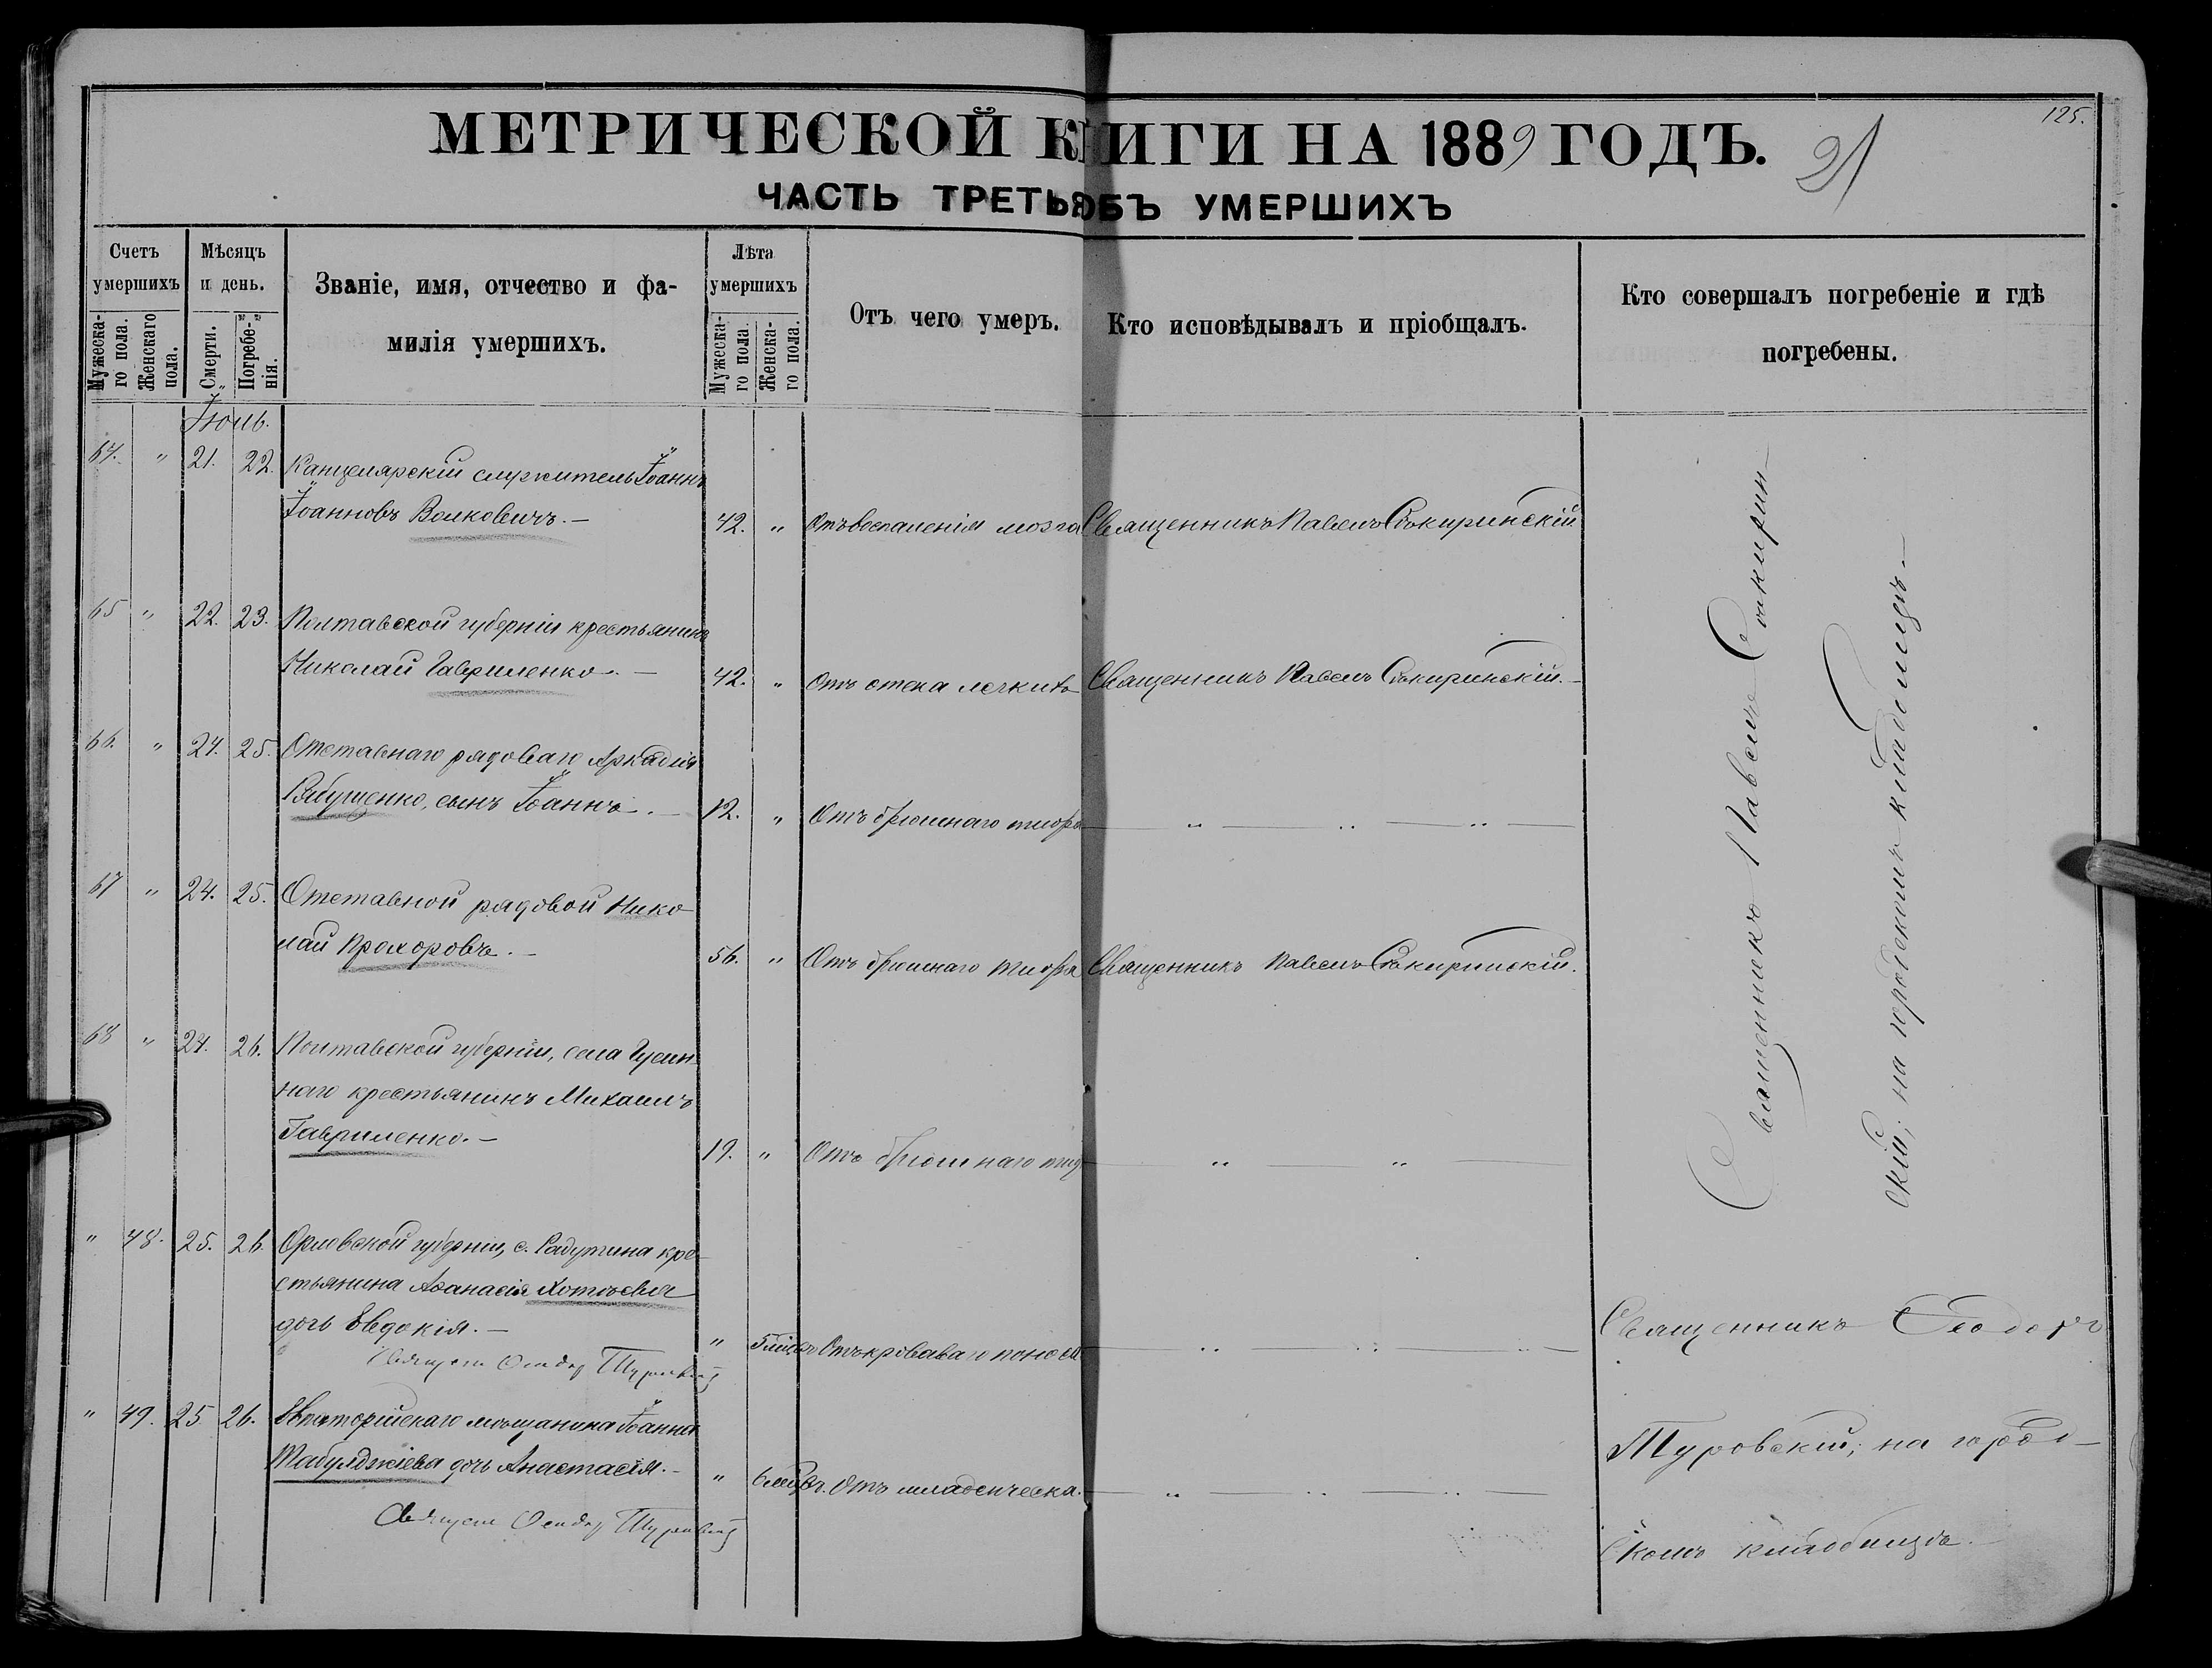 125.
МЕТРИЧЕСКОЙ КНИГИ НА 1889 ГОДЪ.
21
ЧАСТЬ ТРЕТЬЯ ОБЪ УМЕРШИХЪ
Счетъ умершихъ
Мужеска-го пола.
Женскаго пола.
Мѣсяцъ и день.
Смерти.
Погребе-нія.
Званіе, имя, отчество и фа-
милія умершихъ.
Лѣта умершихъ
Мужеска-го пола.
Женска-го пола.
Отъ чего умеръ.
Кто исповѣдывалъ и пріобщалъ.
Кто совершалъ погребеніе и гдѣ
погребены.
Іюль.
64. " 21. 22. Канцелярскій служитель Іоаннъ
Іоанновъ Волковичъ. — 42. " Отъ воспаленія мозга Священникъ Павелъ Сѣкиринскій
65 " 22. 23. Полтавской губерніи крестьянинъ
Николай Гавриленко. — 42. " Отъ отека легкихъ Священникъ Павелъ Сѣкиринскій. —
66. " 24. 25. Отставнаго рядоваго Аркадія
сынъ Іоаннъ. — 12. " Отъ брюшнаго тифа — " — " — " —
67 " 24. 25. Отставной рядовой Нико
лай Прохоровъ. — 56. " Отъ брюшнаго тифа Священникъ Павелъ Сѣкиринскій.
68 " 24. 26. Полтавской губерніи, села Гусин-
наго крестьянинъ Михаилъ
Гавриленко. — 19. " Отъ брюшнаго тиф — " — " —
Священникъ Павелъ Сѣкирин-
скій; на городскомъ кладбищѣ. —
" 48. 25. 26. Орловской губерніи, с. Радутина кре-
стьянина Аѳанасія Хотѣева
дочь Евдокія. — " 5 мѣц Отъ кроваваго поноса — " — " — " —
Туровскій
" 49. 25 26. Евпаторійскаго мѣщанина Іоанна
Табулджіева дочь Анастасія. — " 6 мѣц. Отъ младенческа. — " — " — " —
Туровскій
Священникъ Ѳеодоръ
Туровскій; на город-
скомъ кладбищѣ.